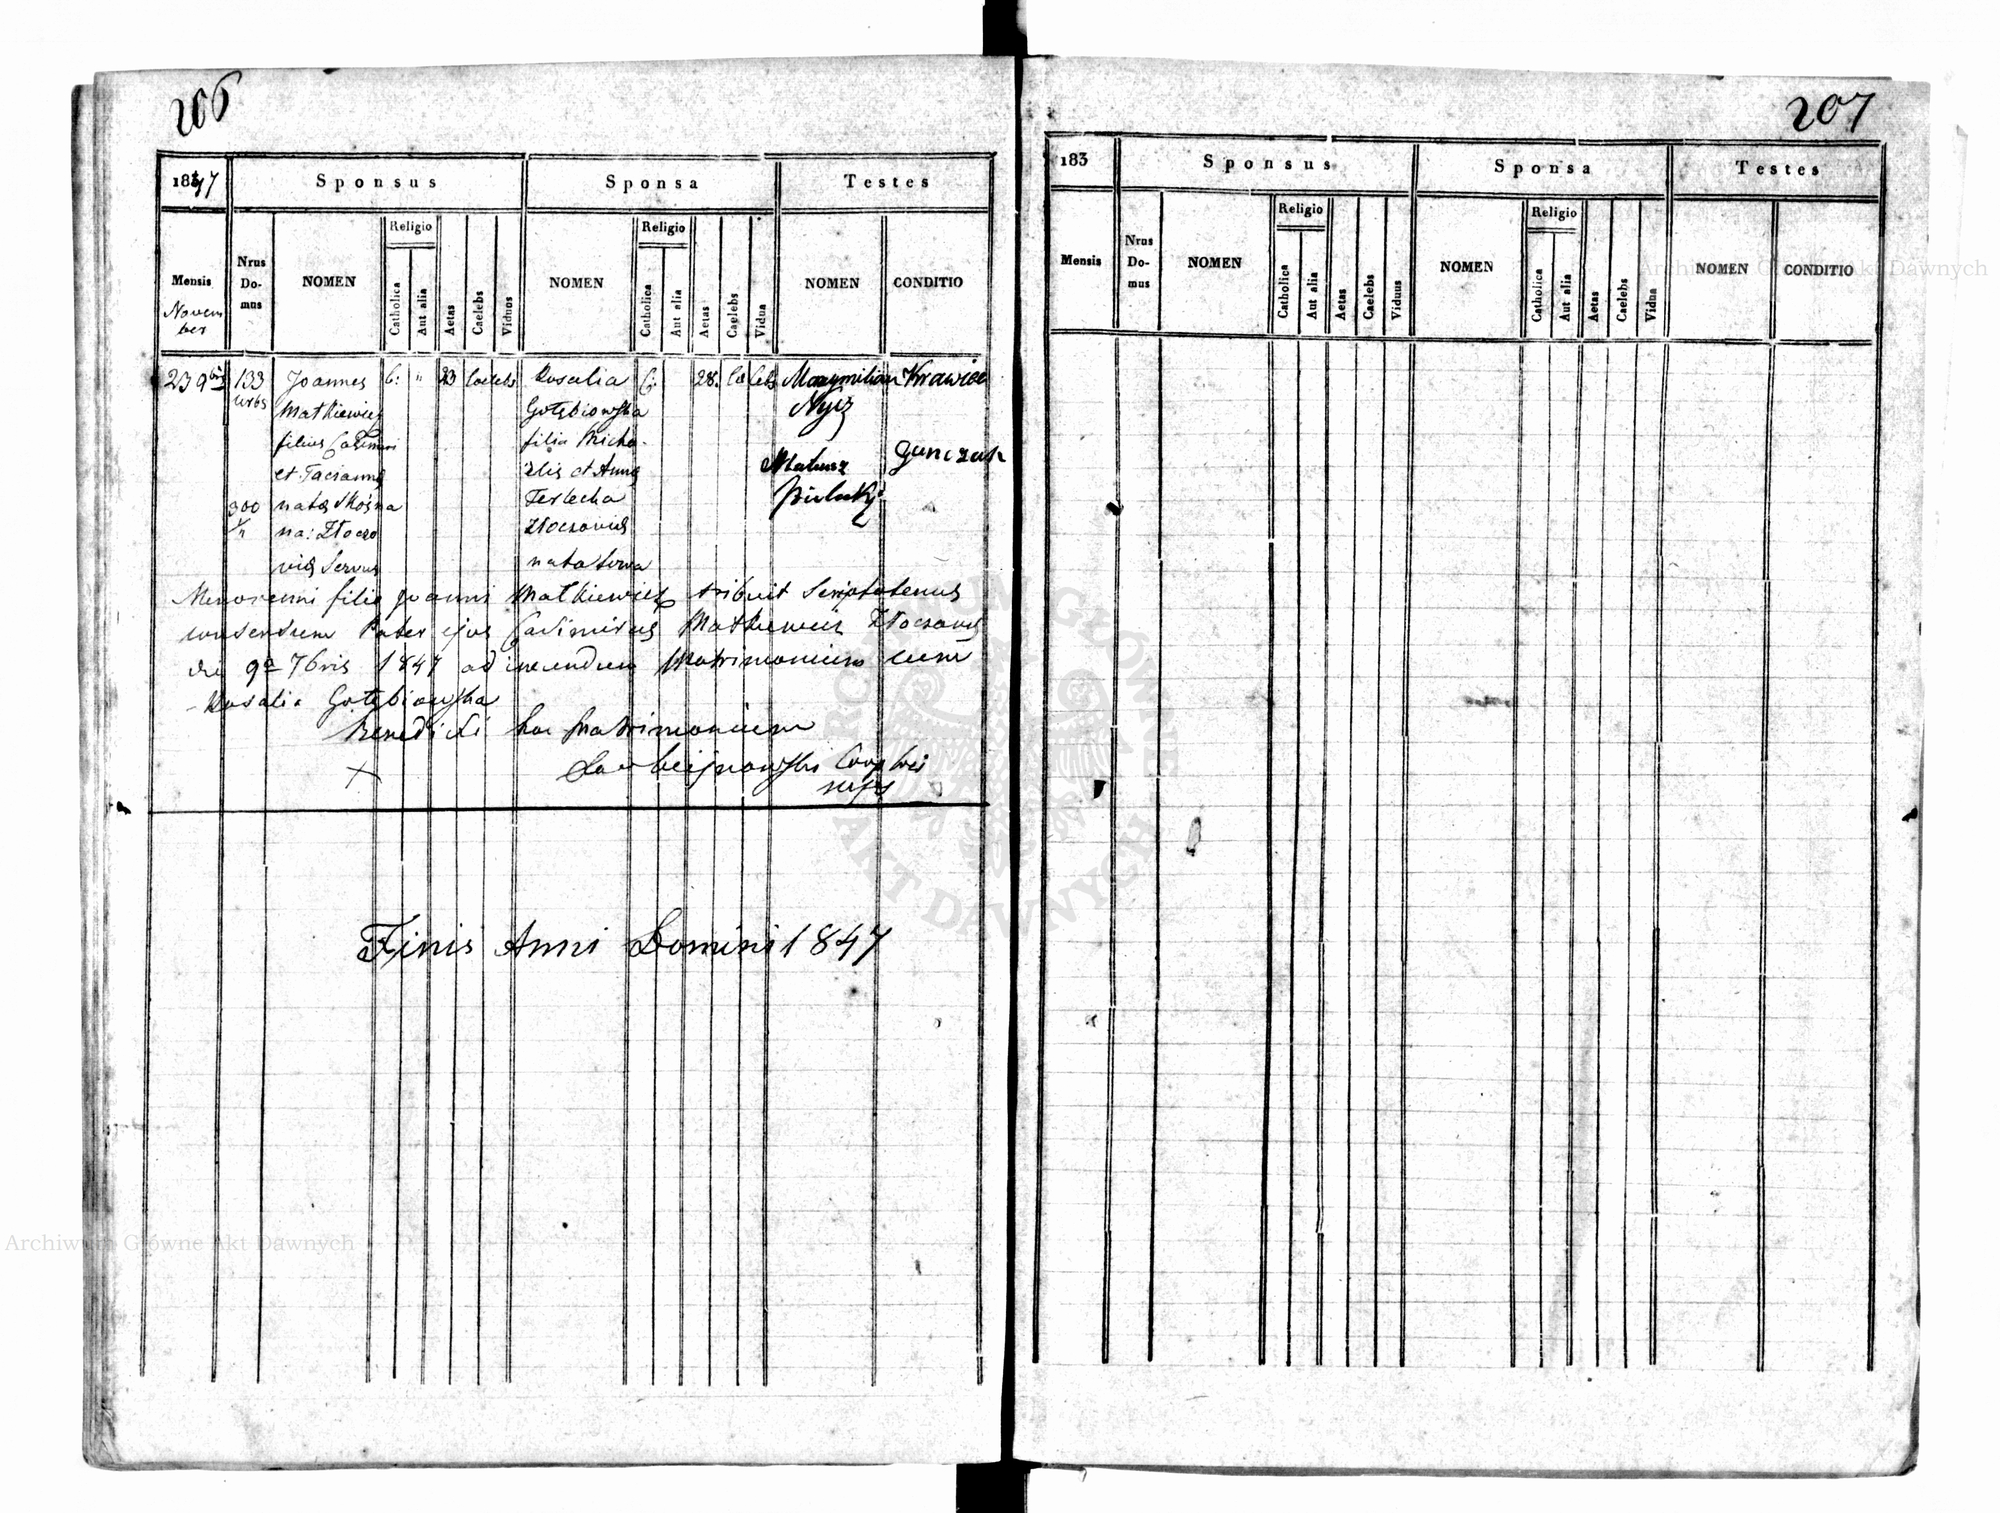 206
1847 Sponsus Sponsa Testes
Mensis Nrus Domus NOMEN Religio Catholica Aut alia Aetas Caelebs Viduus NOMEN Religio Catholica Aut alia Aetas Caelebs Vidua NOMEN CONDITIO
Novem
ber
23 9bris 133 Joannes C: " 23 Caelebs Rosalia C: 28. Cae lebs Maxymilian Krawiec
urbs Matkiewicz Gołębiowska Nycz
filius Casimiri filia Micha-
et elis et Anna Mateusz Gunczar
300 natus Terlecka
na: Złoczo Złoczoviae
viae Servus nata serva
Minorenni filio Joanni Matkiewicz tribuit Scriptotenus
consensum Pater ejus Casimirus Matkiewicz Złoczoviae
die 9a 7bris 1847 ad ineundum Matrimonium cum
Rosalia Gołębiowska
Benedixi hoc Matrimonium
Coop
Finis Anni Domini 1847
207
183 Sponsus Sponsa Testes
Mensis Nrus Do-mus NOMEN Religio Catholica Aut alia Aetas Caelebs Viduus NOMEN Religio Catholica Aut alia Aetas Caelebs Vidua NOMEN CONDITIO
Archiwum Główne Akt Dawnych
ARCHIWUM GŁÓWNE
AKT DAWNYCH
Archiwum Główne Akt Dawnych